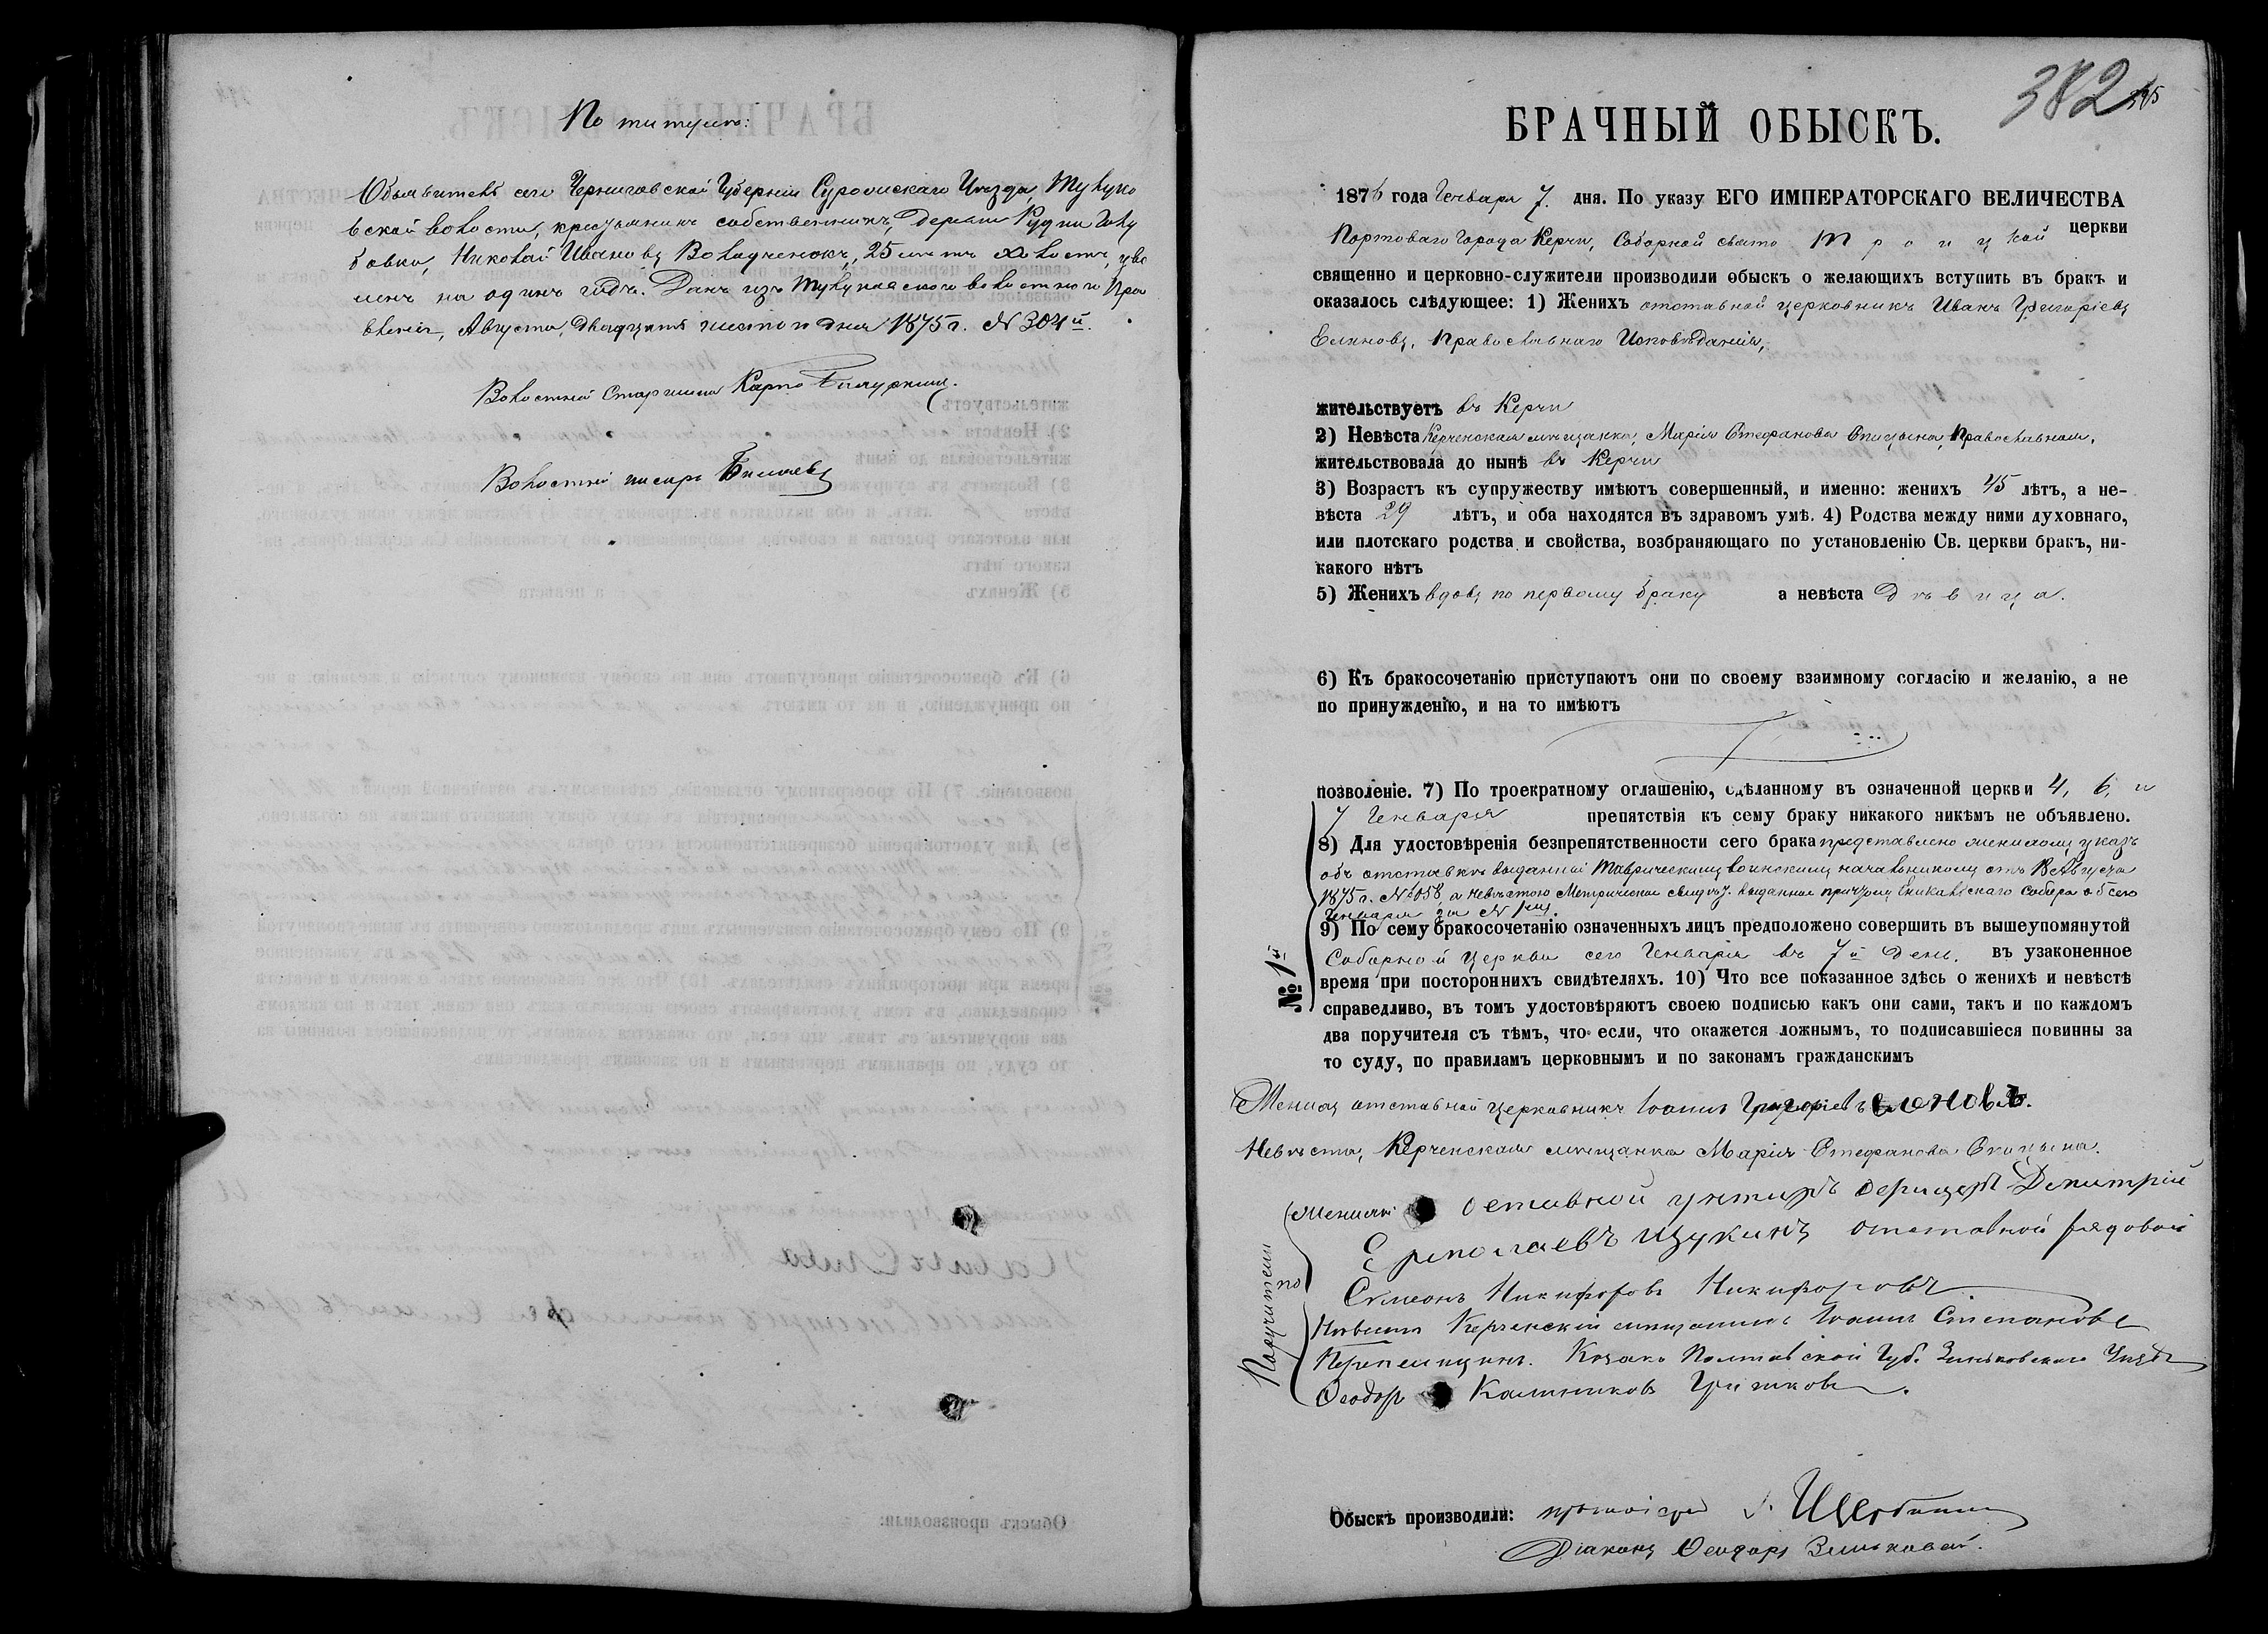 По титулъ:
Объявитель сего Черниговской Губерніи Суражскаго Уѣзда,
вской волости, крестьянинъ собственникъ, Деревни Рудни Голу
бовки, Николай Ивановъ 25 лѣтъ холостъ, уво
ленъ на одинъ годъ. Данъ изъ волостнаго Пра
вленія, Августа двадцать шестого дня 1875 г. № 304й.
Волостной Старшина Карпо
Волостной писарь
382
БРАЧНЫЙ ОБЫСКЪ.
1876 года Генваря 7. дня. По указу ЕГО ИМПЕРАТОРСКАГО ВЕЛИЧЕСТВА
Портоваго Города Керчи, Соборной свято Троицкой церкви
священно и церковно-служители производили обыскъ о желающихъ вступить въ бракъ и
оказалось слѣдующее: 1) Женихъ отставной церковникъ Иванъ Григоріевъ
Православнаго Исповѣданія,
жительствуетъ въ Керчи
2) Невѣста Керченская мѣщанка, Марія Стефанова Спицына, Православная,
жительствовала до нынѣ въ Керчи
3) Возрастъ къ супружеству имѣютъ совершенный, и именно: женихъ 45 лѣтъ, а не-
вѣста 29 лѣтъ, и оба находятся въ здравомъ умѣ. 4) Родства между ними духовнаго,
или плотскаго родства и свойства, возбраняющаго по установленію Св. церкви бракъ, ни-
какого нѣтъ
5) Женихъ вдовъ по первому браку а невѣста Дѣвица.
6) Къ бракосочетанію приступаютъ они по своему взаимному согласію и желанію, а не
по принужденію, и на то имѣютъ
позволеніе. 7) По троекратному оглашенію, сдѣланному въ означенной церкви 4, 6, и
7 Генваря препятствія къ сему браку никакого никѣмъ не объявлено.
8) Для удостовѣренія безпрепятственности сего брака представлено женихомъ указъ
объ отставкѣ выданный Таврическимъ воинскимъ начальникомъ отъ Августа
1875 г. а невѣстою Метрическое свидѣт. выданное причтомъ Еникальскаго Собора о 5 сего
Генваря за № 1мъ.
9) По сему бракосочетанію означенныхъ лицъ предположено совершить въ вышеупомянутой
Соборной Церкви сего Генваря въ 7й день. въ узаконенное
время при постороннихъ свидѣтеляхъ. 10) Что все показанное здѣсь о женихѣ и невѣстѣ
справедливо, въ томъ удостовѣряютъ своею подписью какъ они сами, такъ и по каждомъ
два поручителя съ тѣмъ, что если, что окажется ложнымъ, то подписавшіеся повинны за
то суду, по правиламъ церковнымъ и по законамъ гражданскимъ
№ 1й
Женихъ отставной церковникъ Іоаннъ Григоріевъ
Невѣста, Керченская мѣщанка Марія Стефанова Спицына.
Поручители
по
Женихѣ отставной унтеръ офицеръ Дмитрій
Ермолаевъ Щукинъ отставной рядовой
Симеонъ Никифоровъ Никифоровъ
Невѣстѣ Керченскій мѣщанинъ Іоаннъ Степановъ
Перепелицынъ. Козакъ Полтавской Губ. Зеньковскаго Уѣзда
Ѳеодоръ Калинниковъ Гришковъ.
Обыскъ производили: протоіерей І. Щербинин
Діаконъ Ѳеодоръ Зеньковой.